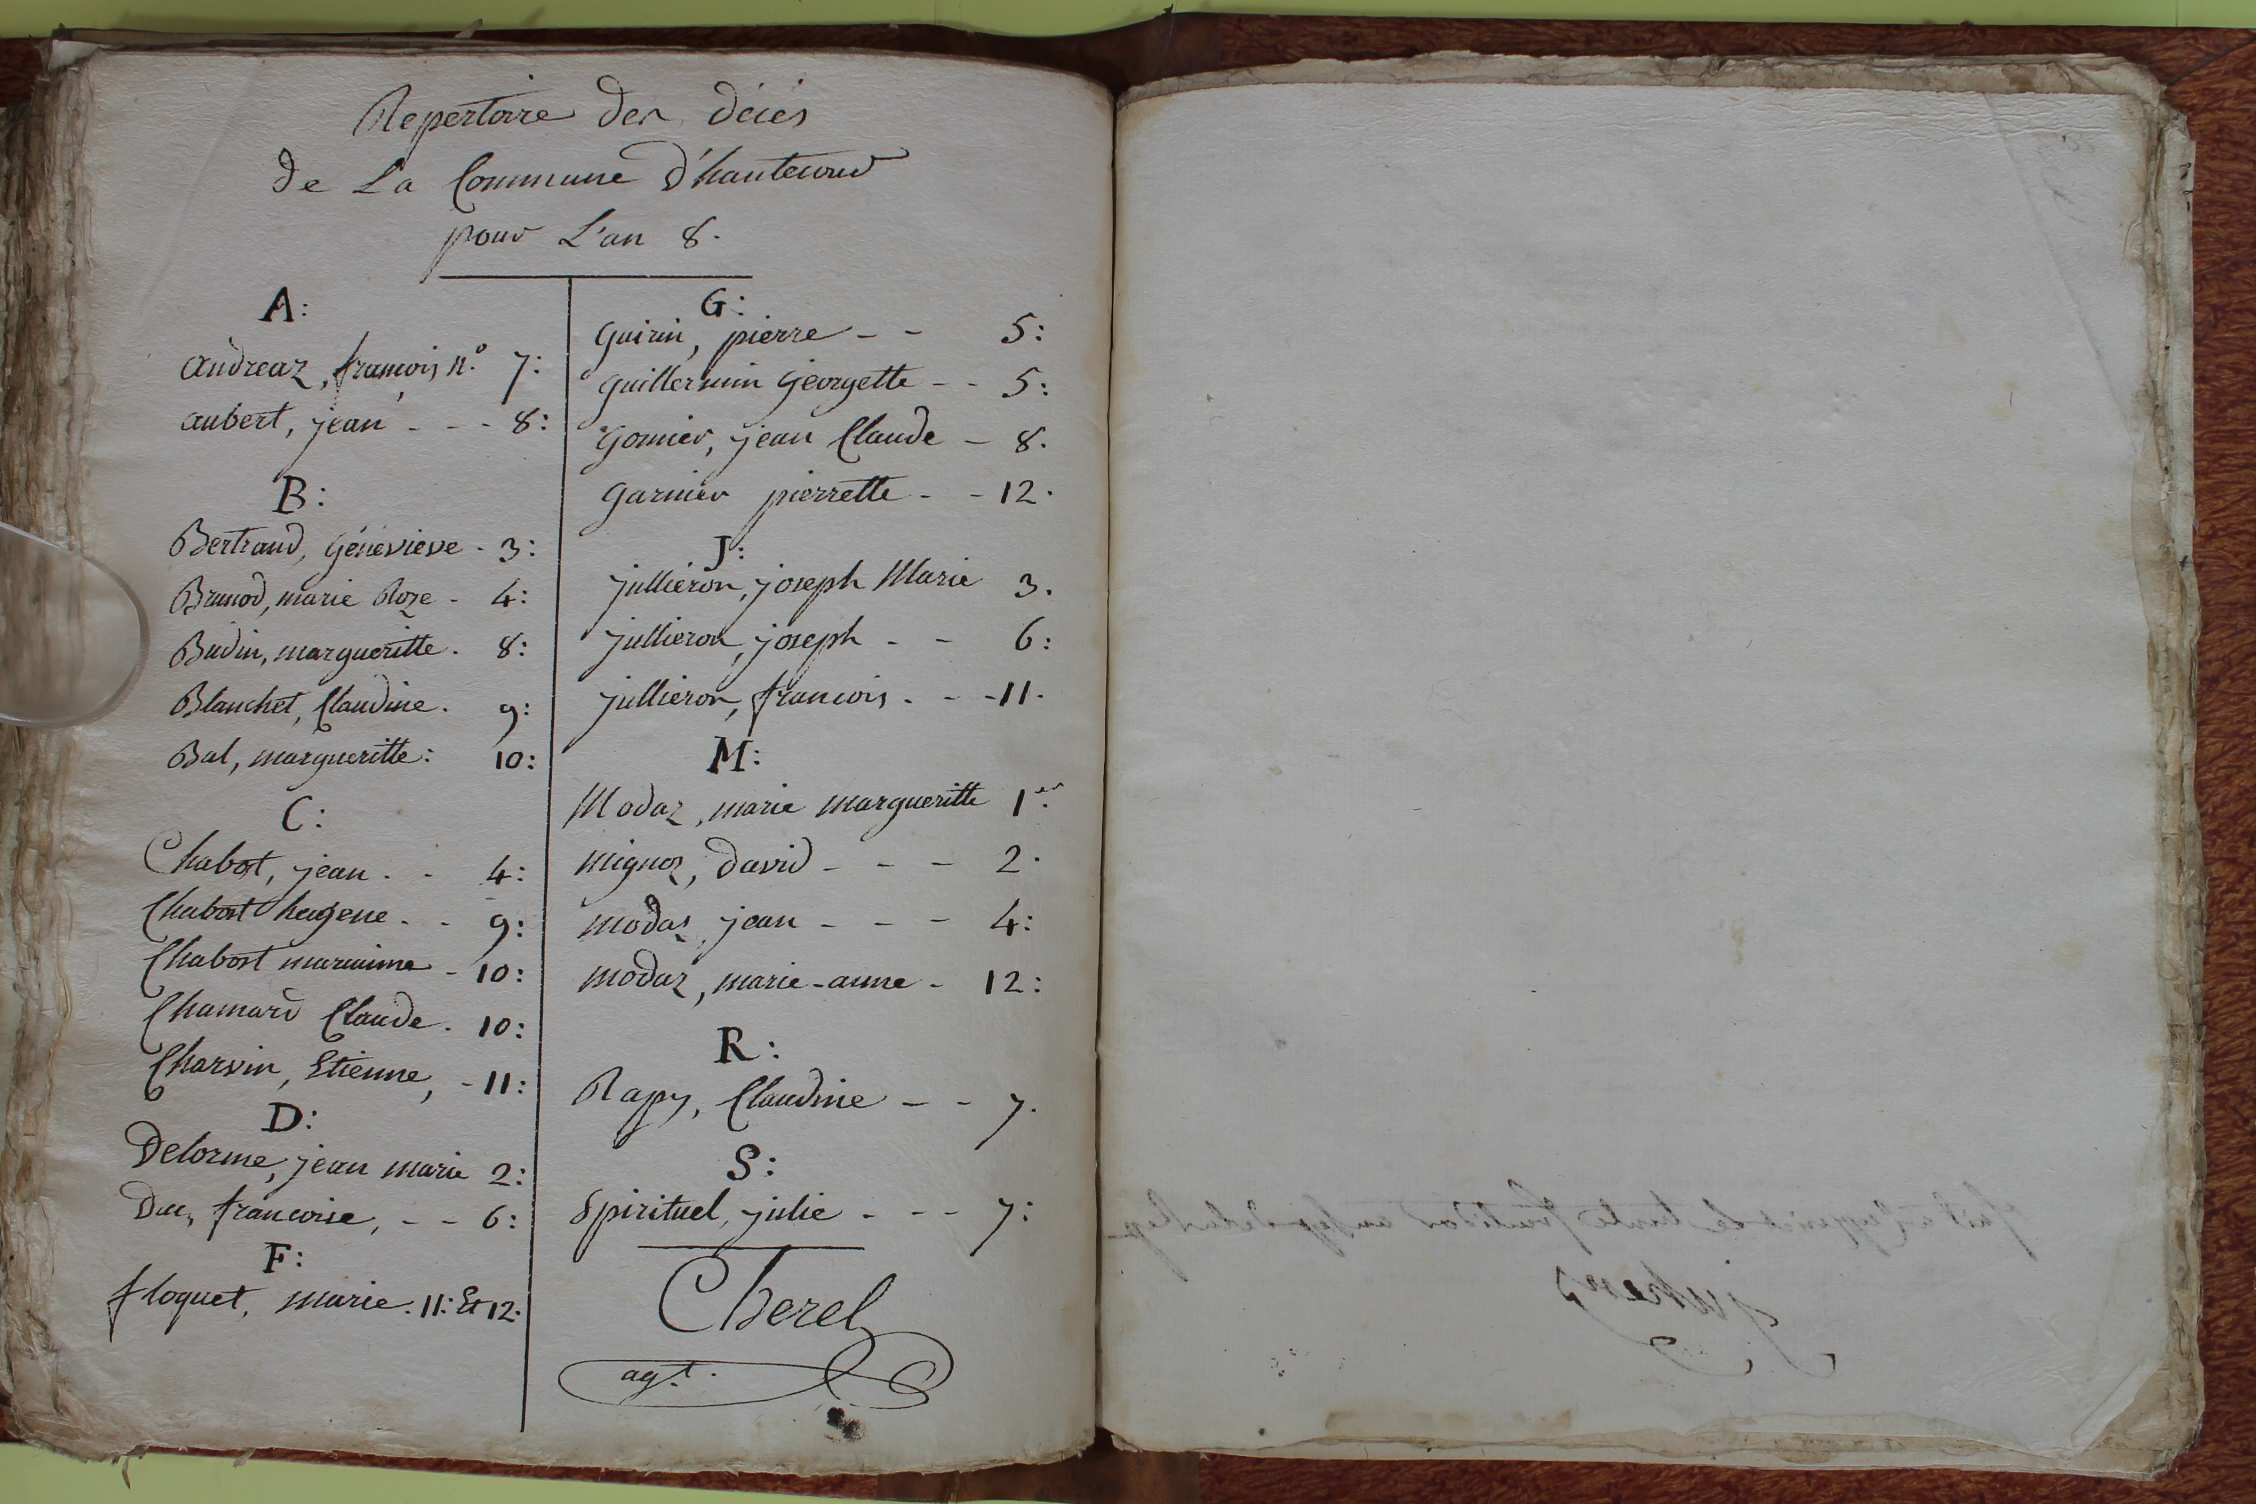 Repertoire des décès
de La Commune d'hautecour
pour L'an 8.
A:
Andreaz, francois n.º 7:
aubert, jean - - - 8:
B:
Bertrand, Géneviève - 3:
Brunod, marie Roze - 4:
Budin, margueritte. 8:
Blanchet, Claudine. 9:
Bal, margueritte: 10:
C:
Chabort, jean. - 4:
Chabort hugene. - 9:
Chabort marianne - 10:
Chamard Claude. 10:
Charvin, Etienne, - 11:
D:
Delorme, jean marie 2:
Duc, francoise, - - 6:
F:
floquet, marie. 11: Et 12.
G:
Guirin, pierre - - 5:
guillermin georgette - - 5:
Gonnier, jean Claude - 8.
garnier pierrette - - 12.
J:
jullieron, joseph Marie 3.
jullieron, joseph - - 6:
jullieron, francois. - - 11.
M:
Modaz, marie margueritte 1er
mignoz, david - - - 2.
modaz, jean - - - 4:
modaz, marie-anne - 12:
R:
Rapy, Claudine - - 7.
S:
Spirituel, julie - - - 7:
Cherel
agt.